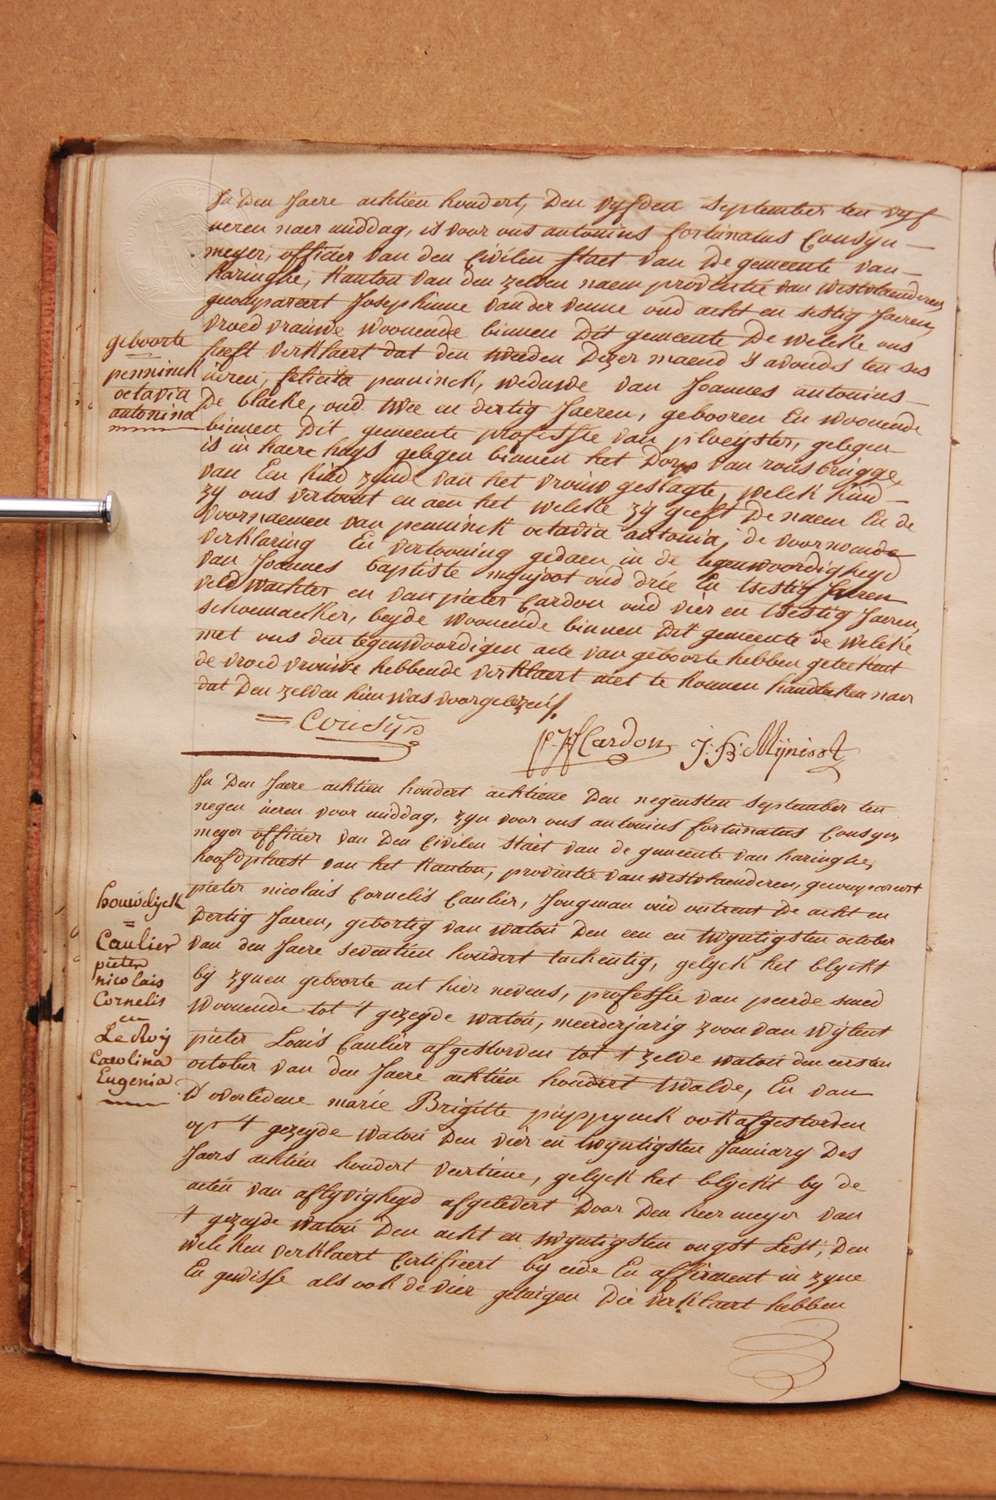 In den Jaere achtien hondert, den vyfden september ten vyf
ueren naer middag, is voor ons antonius fortunatus Cousyn
meyer, officier van den Civilen staet van de gemeente van
haringhe, kanton van den zelven naem provintie van westvlaenderen,
gecompareert Josephinne van der venne oud acht en sestig Jaeren,
vroed vrauwe woonende binnen dit gemeente de welke ons
heeft verklaert dat den tweeden dezer maend 's avonds ten ses
ueren, felicita penninck, weduwe van Joannes antonius
De blacke, oud twee en dertig Jaeren, gebooren En woonende
binnen dit gemeente professie van ploegster, gelegen
is in haere huys gelegen binnen het dorp van rousbrugge
van Een kind zynde van het vrouw geslagte, welck kind
zy ons vertoont en aen het welke zy geeft de naem En de
voornaemen van penninck octavia antonia, de voornoemde
verklaring En vertooning gedaen in de tegenwoordigheyd
van Joannes baptiste mynjoot oud drie En tsestig Jaeren
veld wachter en van pieter Cardon oud vier en tsestig Jaeren,
schoemaeker, beyde woonende binnen dit gemeente de welke
met ons den tegenwoordigen acte van geboorte hebben geteekent
de vroed vrauwe hebbende verklaert niet te konnen handteken naer
dat den zelven hun was voorgelezen
geboorte
penninck
octavia
antonina
Cousyn
P. J. Cardon J: B: Mÿnioot
In den Jaere achtien hondert achtiene den negensten september ten
negen ueren voor middag, zyn voor ons antonius fortunatus Cousyn,
meyer officier van den Civilen staet van de gemeente van haringhe,
hoofdplaest van het kanton, provintie van westvlaenderen, gecompareert
pieter nicolais Cornelis Caulier, Jongman oud ontrent de acht en
dertig Jaeren, gebortig van watou den een en twyntigsten october
van den Jaere seventien hondert tachentig, gelyck het blyckt
by zynen geboorte act hier nevens, professie van peerde smed
woonende tot 't gezeyde watou, meerderjarig zoon van wylent
pieter Louis Caulier afgestorven tot 't zelve watou den eersten
october van den Jaere achtien hondert twalve, En van
d'overledene marie Brigitte puyppynck ook afgestorven
op 't gezeyde watou den vier en twyntigsten January des
Jaers achtien hondert veertiene, gelyck het blyckt by de
acten van aflyvigheyd afgelevert door den heer meyer van
't gezeyde watou den acht en twyntigsten ougst lest, den
welcken verklaert Certifieert by eede En affirment in zyne
En gewisse als ook de vier getuigen die verklaert hebben
houwelyck
Caulier
pieter
nicolais
Cornelis
en
Le Roÿ
Carolina
Eugenia